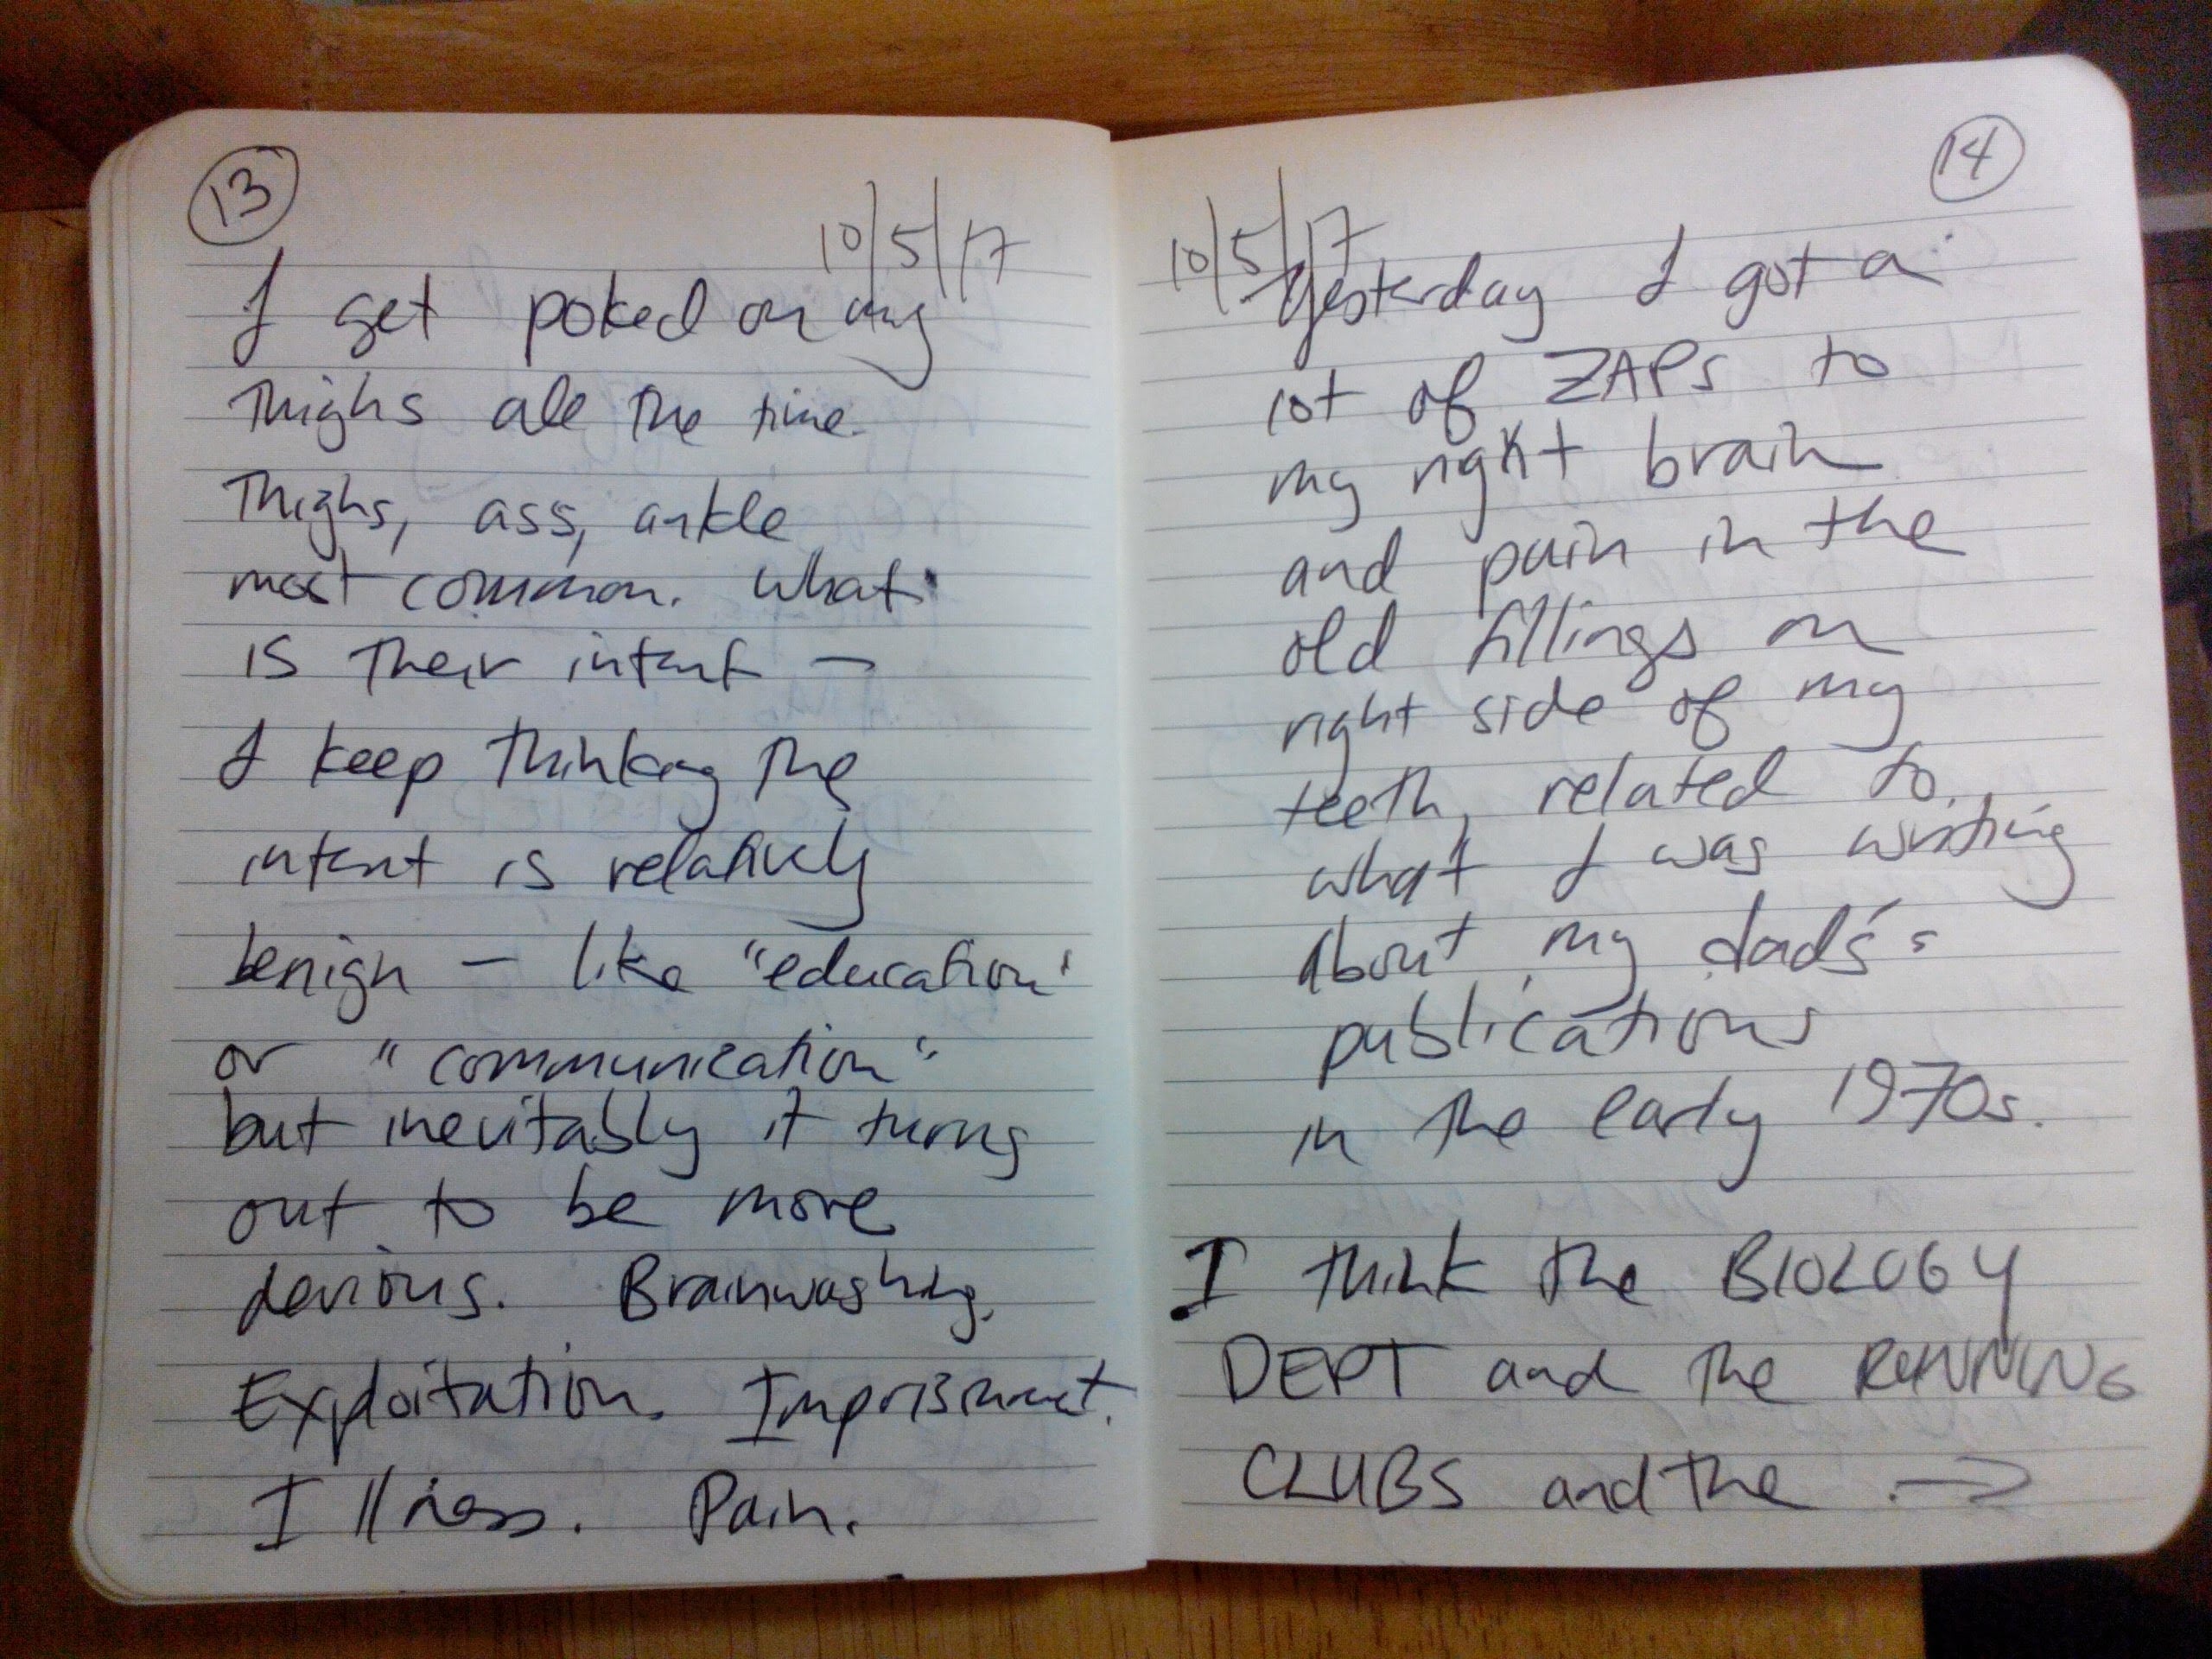 13
10/5/17
I get poked on my
Thighs all the time.
Thighs, ass, ankle
most common. What
is their intent —
I keep thinking the
intent is relatively
benign — like "education"
or "communication"
but inevitably it turns
out to be more
devious. Brainwashing.
Exploitation. Imprisonment.
Illness. Pain.
14
10/5/17
Yesterday I got a
lot of ZAPS to
my right brain
and pain in the
old fillings on
right side of my
teeth, related to
what I was writing
about my dad's
publications
in the early 1970s.
I think the BIOLOGY
DEPT and the RUNNING
CLUBS and the →